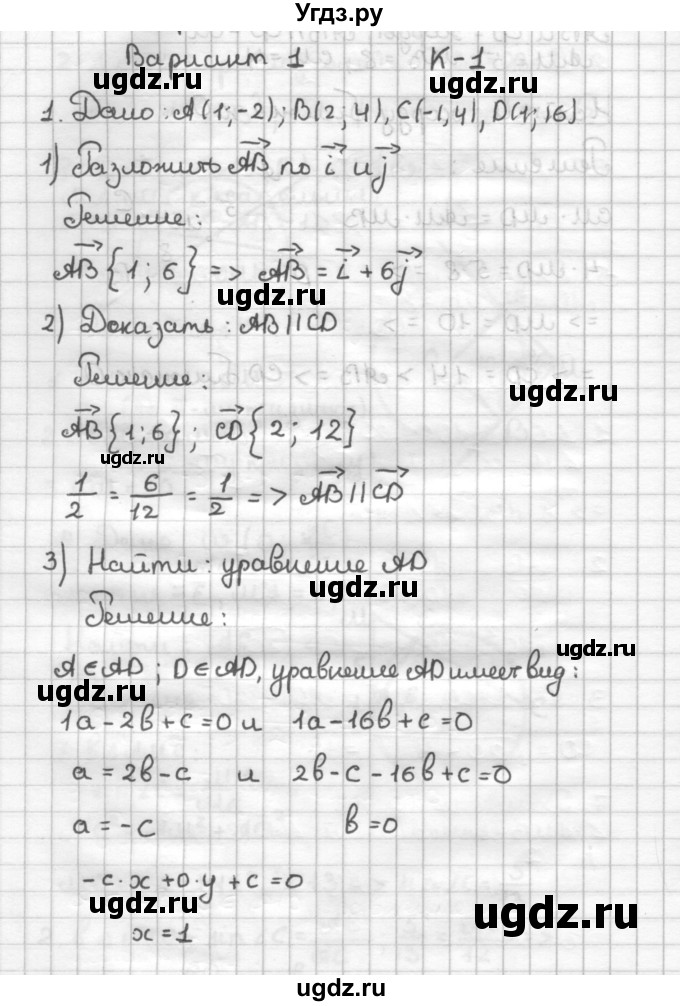 Угдз.ру
Вариант 1 К-1
ugdz.ru ugdz.ru
1. Дано: A(1;-2); B(2;4), C(-1,4), D(1;16)
1) Разложить AB по i и j
Решение:
AB{1; 6} => AB = i + 6j
ugdz.ru
2) Доказать: AB || CD
Решение:
ugdz.ru
AB{1;6}; CD{2; 12}
ugdz.ru
1/2 = 6/12 = 1/2 => AB || CD
3) Найти: уравнение AD
ugdz.ru
Решение:
ugdz.ru
A ∈ AD; D ∈ AD, уравнение AD имеет вид:
ugdz.ru
1a - 2b + c = 0 и 1a - 16b + c = 0
a = 2b - c и 2b - c - 16b + c = 0
a = -c b = 0
-c·x + 0·y + c = 0
ugdz.ru ugdz.ru
x = 1
ugdz.ru